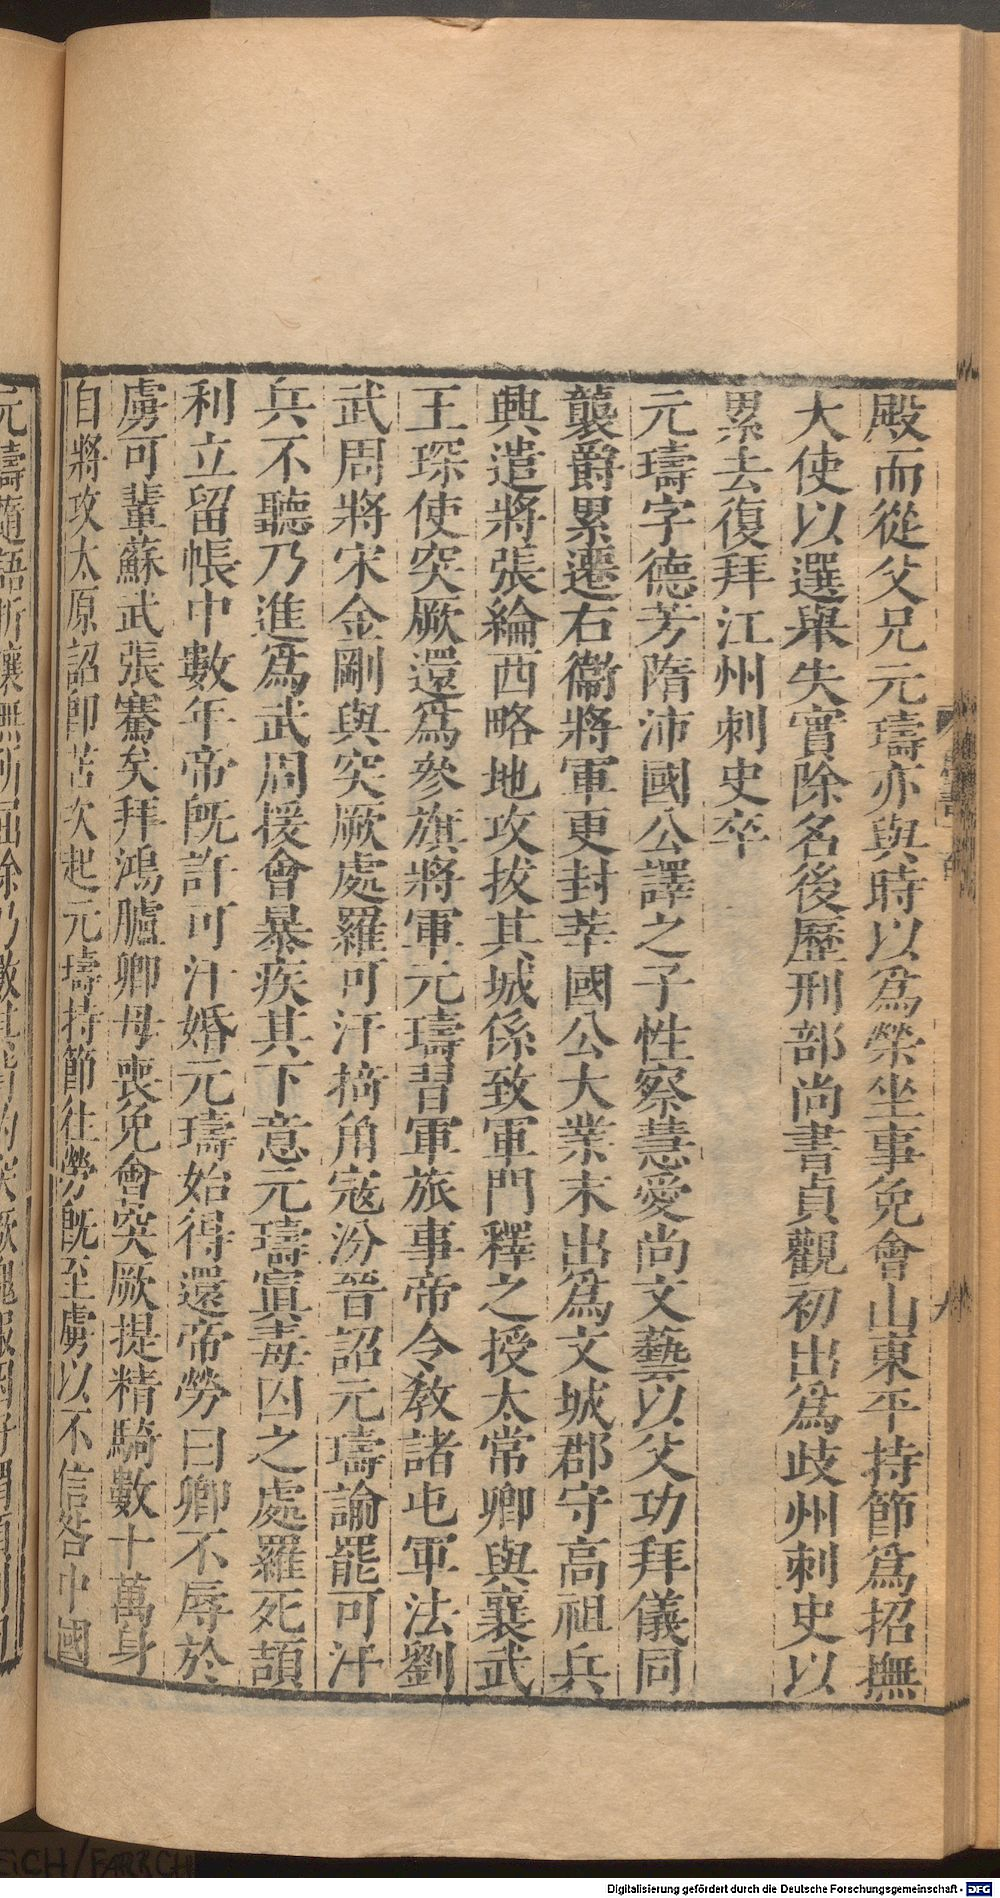 殿而從父兄元璹亦與時以爲榮坐事免會山東平持節爲招撫
大使以選舉失實除名後歷刑部尚書貞觀初出爲歧州刺史以
累去復拜江州刺史卒
元璹字德芳隋沛國公譯之子性察慧愛尚文藝以父功拜儀同
襲爵累遷右衞將軍更封莘國公大業末出爲文城郡守高祖兵
興遣將張綸西略地攻拔其城係致軍門釋之授太常卿與襄武
王琛使突厥還爲參旗將軍元璹習軍旅事帝令教諸屯軍法劉
武周將宋金剛與突厥處羅可汗掎角寇汾晉詔元璹諭罷可汗
兵不聽乃進爲武周援會暴疾其下意元璹寘毒囚之處羅死頡
利立留帳中數年帝旣許可汗婚元璹始得還帝勞曰卿不辱於
虜可輩蘇武張騫矣拜鴻臚卿母喪免會突厥提精騎數十萬身
自將攻太原詔卽苫次起元璹持節往勞旣至虜以不信咎中國
元璹隨語折讓無所屈徐乃數其背約突厥愧服因好謂頡利曰
Digitalisierung gefördert durch die Deutsche Forschungsgemeinschaft - DFG